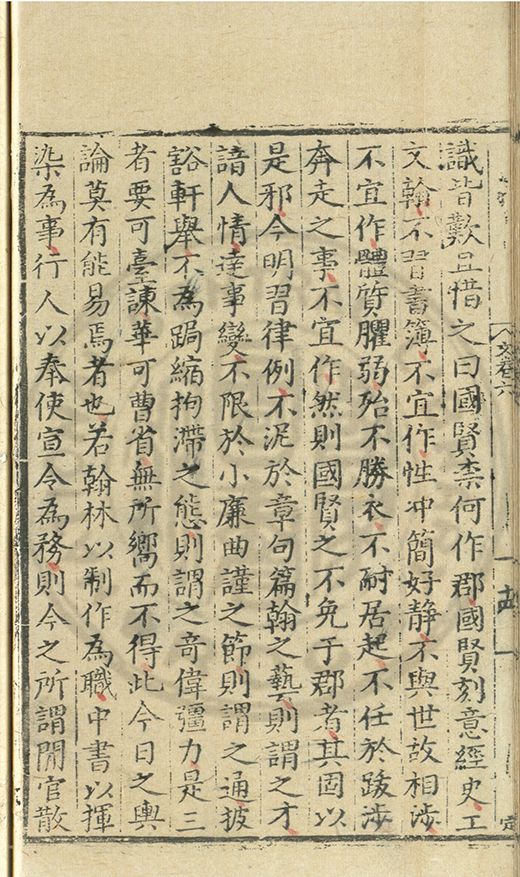 文卷六
十四
定
識皆歎且惜之曰國賢柰何作郡國賢刻意經史工
文翰不習書簿不宜作性冲簡好静不與世故相渉
不宜作體質臞弱殆不勝衣不耐居起不任於跋渉
奔走之事不宜作然則國賢之不免于郡者其固以
是邪今明習律例不泥於章句篇翰之藝則謂之才
諳人情達事變不限於小廉曲謹之節則謂之通披
谿軒舉不為跼縮拘滯之態則謂之奇偉彊力是三
者要可臺諫華可曹省無所嚮而不得此今日之輿
論莫有能易焉者也若翰林以制作為職中書以揮
染為事行人以奉使宣令為務則今之所謂閒官散